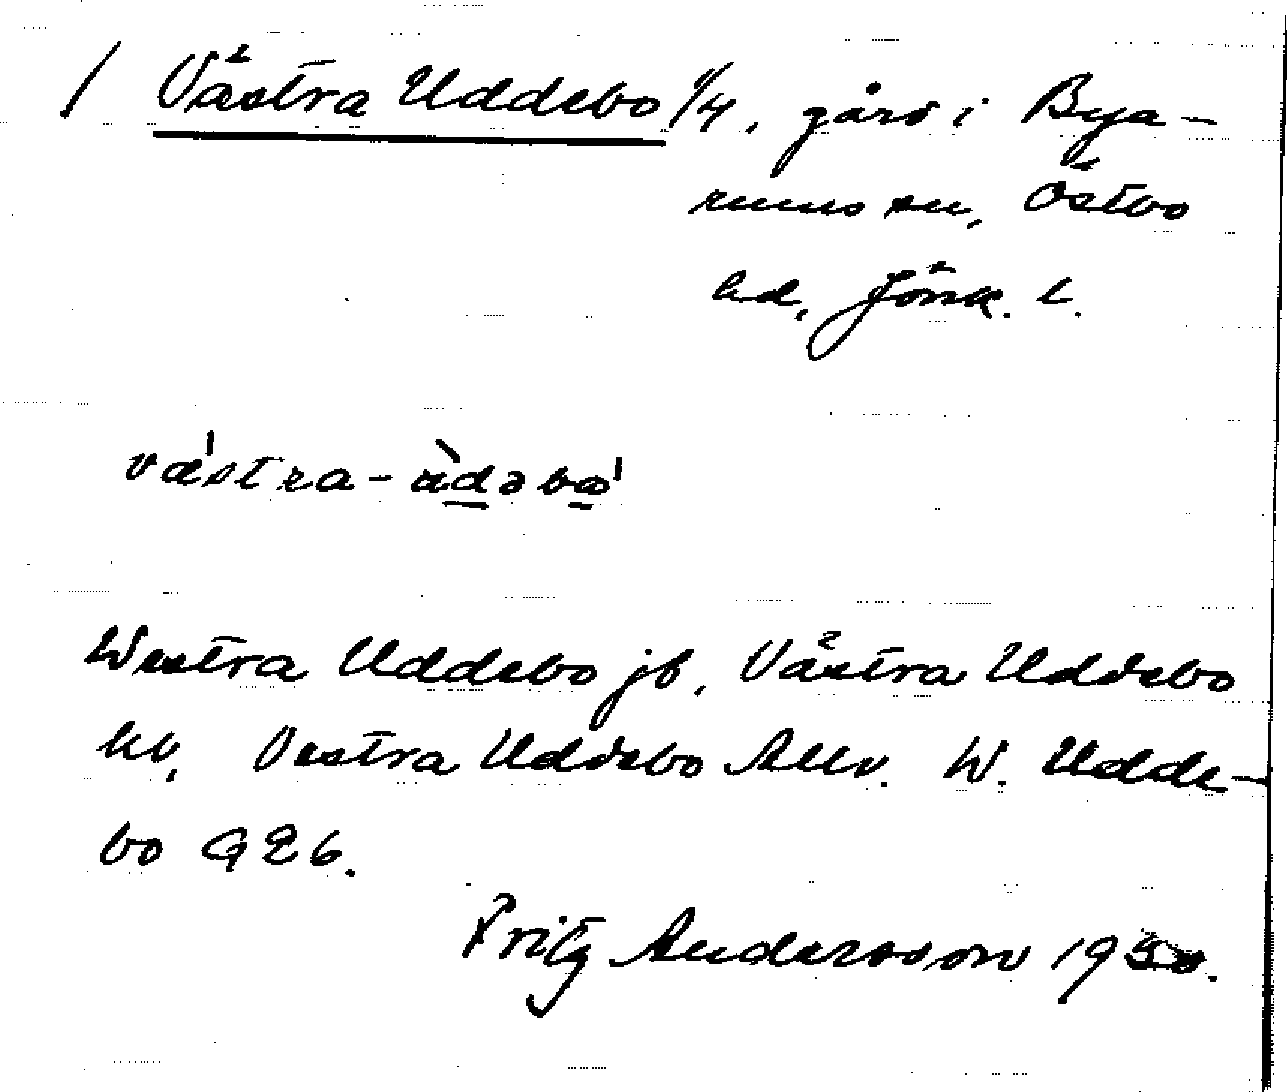 / Västra Uddebo 1/4, gård i Bya-
rums sn, Östbo
hd, Jönk. l.
væ'stra-ùdəbo'
Westra Uddebo jb, Västra Uddebo
kv, Vestra Uddebo Allv. W. Udde-
bo G26.
Fritz Andersson 19